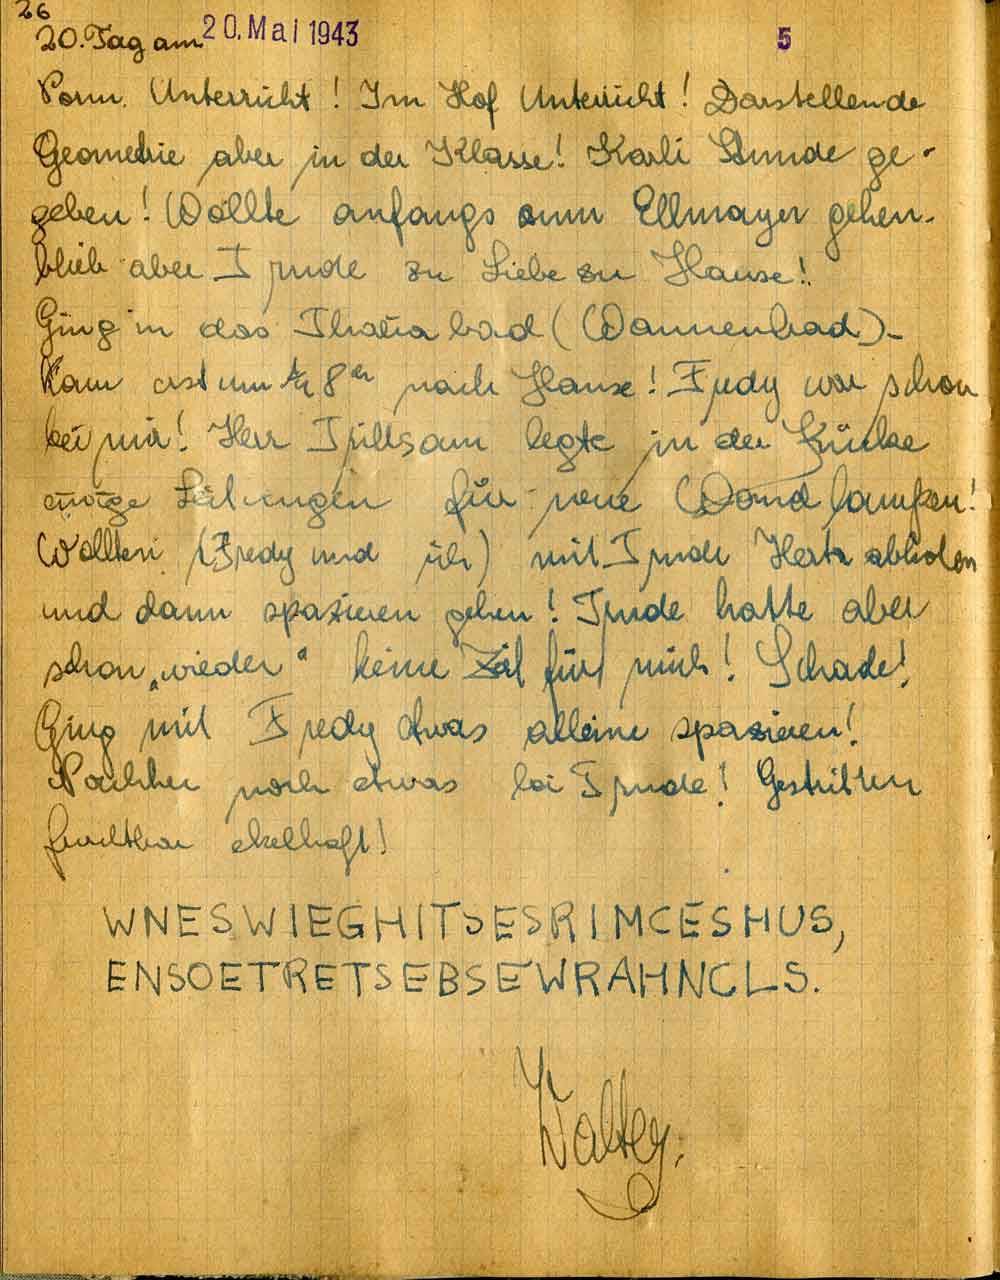 26
20. Tag am 20. Mai 1943 5
Vorm. Unterricht! Im Hof Unterricht! Darstellende
Geometrie aber in der Klasse! Karli Stunde ge-
geben! Wollte anfangs zum Ellmayer gehen.
blieb aber Trude zu Liebe zu Hause!
Ging in das Theresiabad (Wannenbad)-
Kam erst um 8h nach Hause! Fredy war schon
bei mir! Herr legte in der Küche
einige Leitungen für neue Wandlampen!
Wollten (Fredy und ich) mit Trude Herta abholen
und dann spazieren gehen! Trude hatte aber
schon „wieder" keine Zeit für mich! Schade!
Ging mit Fredy etwas alleine spazieren!
Nachher noch etwas bei Trude! Gestritten
furchtbar ekelhaft!
WNESWIEGHITSESRIMCESHUS,
ENSOETRETSEBSEWRAHNCLS.
Walter.